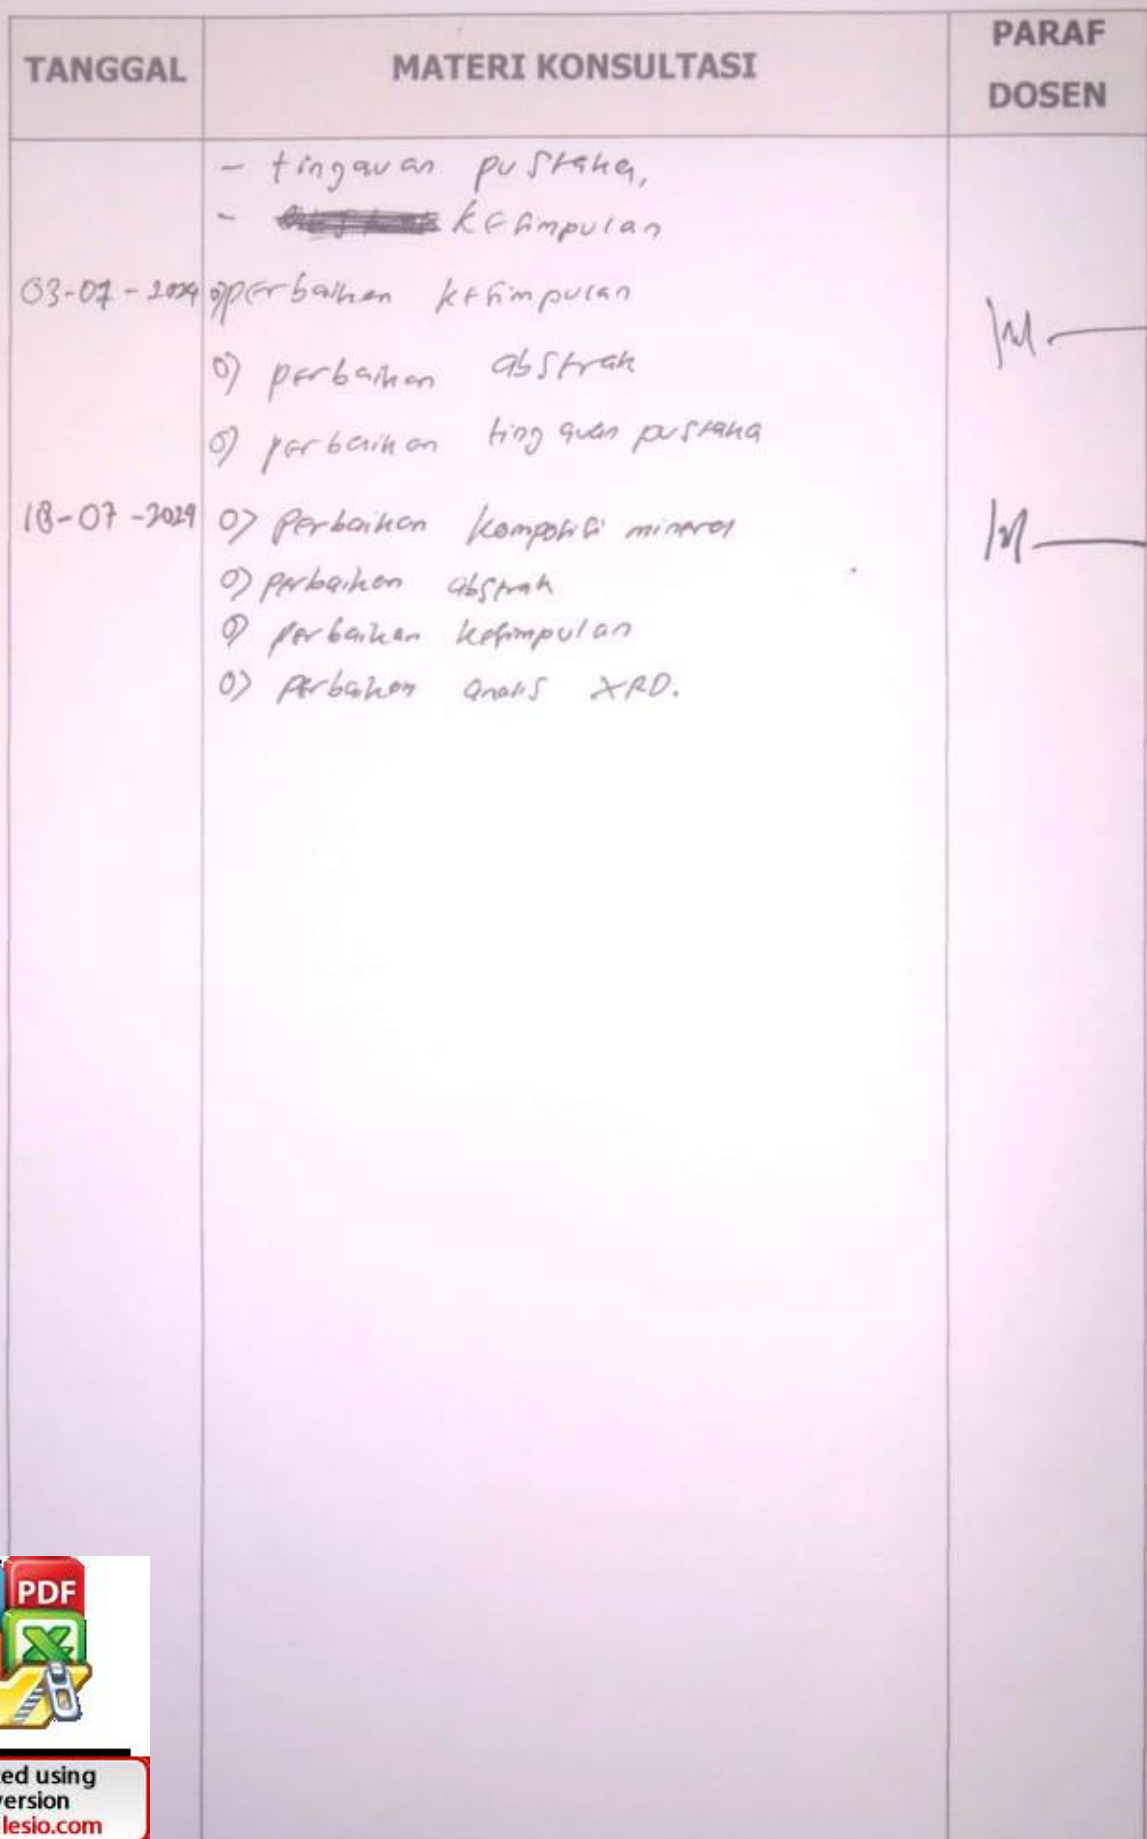 TANGGAL MATERI KONSULTASI PARAF DOSEN
- tingauan pustaka,
- kesimpulan
03-07-2024 o) perbaikan kesimpulan
o) perbaikan abstrak
o) perbaikan tingauan pustaka
18-07-2024 o) Perbaikan komposisi mineral
o) perbaikan abstrak
o) perbaikan kesimpulan
o) perbaikan analis XRD.
PDF
ed using
ersion
lesio.com